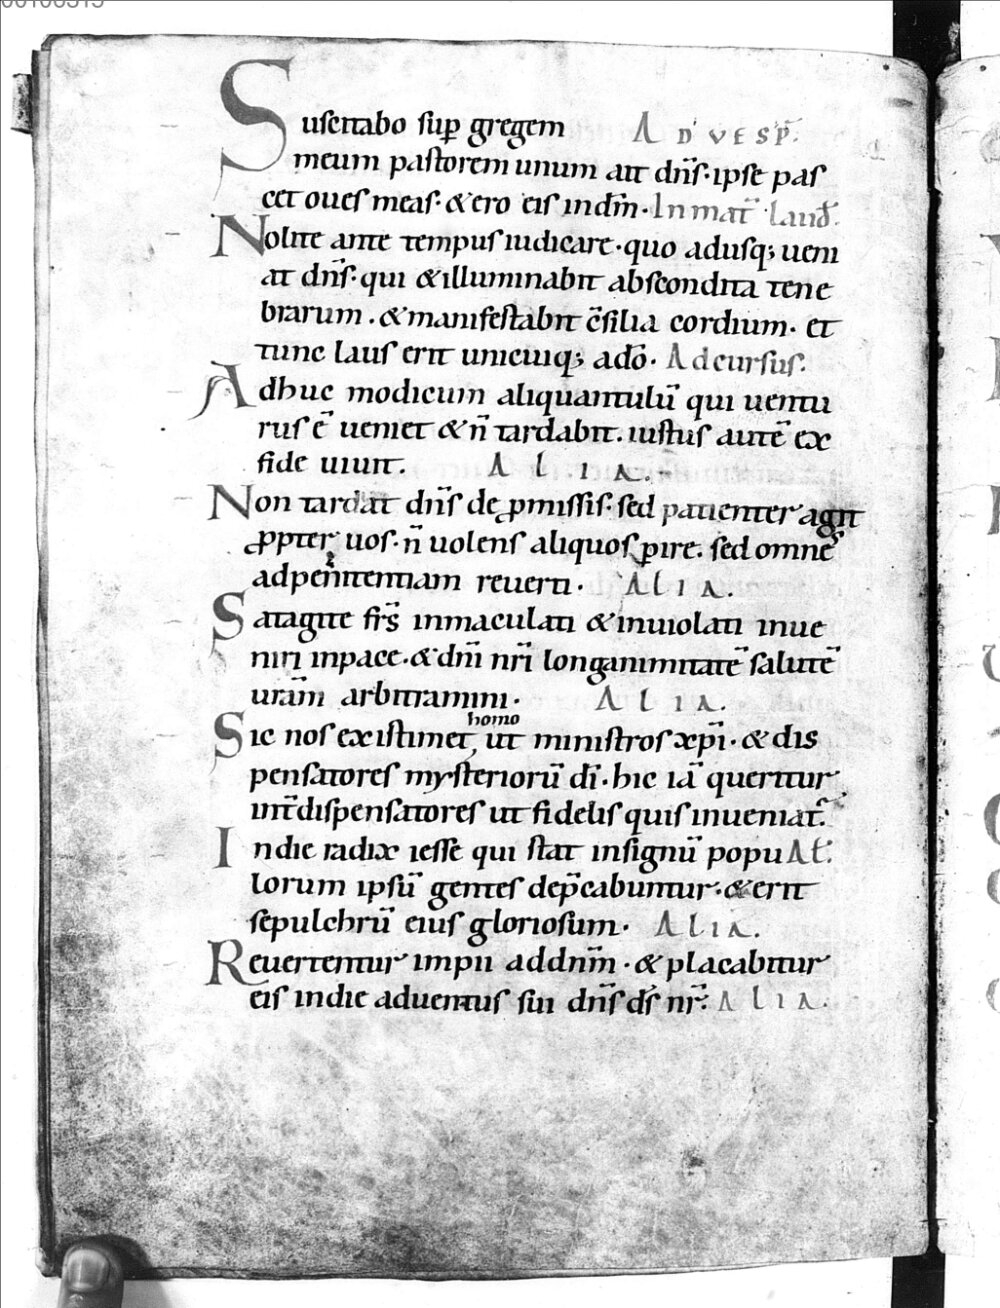 Suscitabo sup̄ gregem AD VESP̄.
meum pastorem unum ait dn̄s. ipse pas
cet oues meas. & ero eis in dm̄. In mat̄. laud̄.
Nolite ante tempus iudicare. quo adusq; ueni
at dn̄s. qui & illuminabit abscondita tene
brarum. & manifestabit c̄silia cordium. et
tunc laus erit unicuiq; adō. Ad cursus.
Adhuc modicum aliquantulū qui uentu
rus ē ueniet & n̄ tardabit. iustus autē ex
fide uiuit. ALIA.
Non tardat dn̄s de ꝓmissis. sed patienter agit
ꝓpter uos. n̄ uolens aliquos ꝑire. sed omnes
ad penitentiam reuerti. ALIA.
Satagite frs̄ inmaculati & inuiolati inue
niri in pace. & dn̄i nr̄i longanimitatē salutē
uram̄ arbitramini. ALIA.
homo
Sic nos existimet, ut ministros xp̄i. & dis
pensatores mysteriorū dī. hic iā queritur
int̄ dispensatores ut fidelis quis inueniat̄.
In die radix iesse qui stat in signū popu Al̄.
lorum ipsū gentes dep̄cabuntur. & erit
sepulchrū eius gloriosum. ALIA.
Reuertentur impii ad dnm̄. & placabitur
eis in die aduentus sui dn̄s ds̄ nr̄. ALIA.